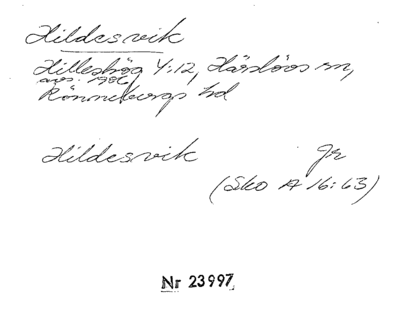 Hildesvik
Hilleshög 4:12, Härslövs sn,
avs. 1986,
Rönnebergs hd
Hildesvik gr
(Sko A 16:63)
Nr 23997